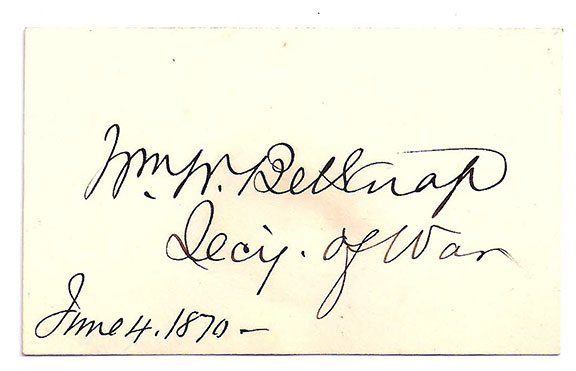 Wm. W. Belknap
Secy. of War
June 4. 1870 –